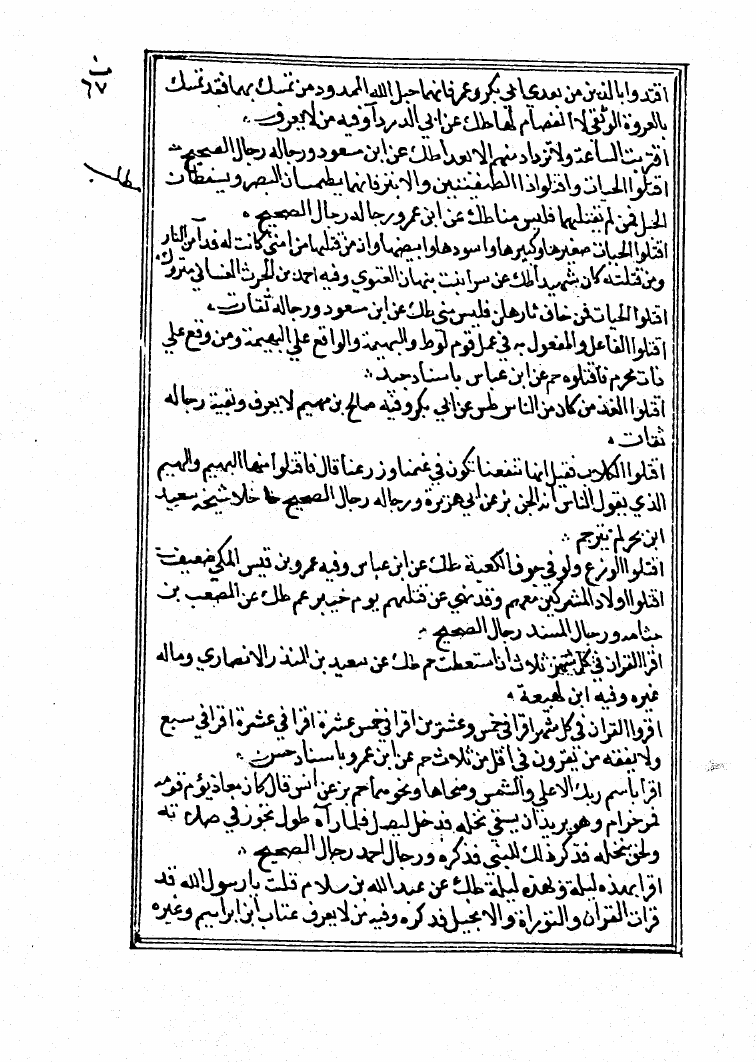 ن
٦٧
مطلب
اقتدوا بالذين من بعدي ابي بكر وعمر فانهما حبل الله الممدود من تمسك بهما فقد تمسك
بالعروة الوثقي لا انفصام لها طك عن ابي الدرداء وفيه من لا يعرف
اقتربت الساعة ولا تزداد منهم الا بعدا طك عن ابن مسعود ورجاله رجال الصحيح
اقتلوا الحيات واقتلوا ذا الطفيتين والابتر فانهما يطمسان البصر ويسقطان
الحبل فمن لم يقتلهما فليس منا طك عن ابن عمر ورجاله رجال الصحيح
اقتلوا الحيات صغيرها وكبيرها واسودها وابيضها وان من قتلها من امتي كانت له فدآ من النار
ومن قتلته كان شهيدا طك عن سرا بنت نبهان الغنوي وفيه احمد بن الحرث الغساني متروك
اقتلوا الحيات فمن خاف ثارهن فليس مني طك عن ابن مسعود ورجاله ثقات
اقتلوا الفاعل والمفعول به في عمل قوم لوط والبهيمة والواقع علي البهيمة ومن وقع علي
ذات محرم فاقتلوه حم عن ابن عباس باسناد جيد
اقتلوا الفذ من كان من الناس طس عن ابي بكر وفيه صالح بن لا يعرف وبقية رجاله
ثقات
اقتلوا الكلاب فقيل انها تنفعنا تكون في غنمنا وزرعنا قال فاقتلوا منها البهيم والبهيم
الذي يقول الناس انه الجن بز عن ابي هريرة ورجاله رجال الصحيح خلا شيخه سعيد
ابن بحر لم يترجم
اقتلوا الوزغ ولو في جوف الكعبة طك عن ابن عباس وفيه عمرو بن قيس المكي ضعيف
اقتلوا اولاد المشركين معهم وقد نهي عن قتلهم يوم خيبر عم طك عن المصعب بن
جثامه ورجال المسند رجال الصحيح
اقرا القران في كل شهر ثلاث ان استطعت حم طك عن سعيد بن المنذر الانصاري وماله
غيره وفيه ابن لهيعة
اقروا القران في كل شهر اقرا في خمس وعشرين اقرا في خمس عشرة اقرا في عشرة اقرا في سبع
ولا يفقه من يقرون في اقل من ثلاث حم عن ابن عمرو باسناد حسن
اقرا باسم ربك الاعلي والشمس وضحاها ونحوهما حم بز عن انس قال كان معاذ يؤم قومه
فمر حرام وهو يريد ان يسقي نخله فدخل ليصل فلما رآه طول تجوز في صلاته
ولحق بنخله فذكر ذلك للنبي فذكره ورجال احمد رجال الصحيح
اقرا بهذه ليلة وبهذه ليلة طك عن عبد الله بن سلام قلت يا رسول الله قد
قرات القران والتوراة والانجيل فذكره وفيه من لا يعرف عتاب ابن ابراهيم وغيره